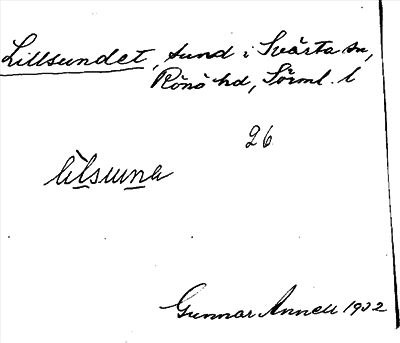 Lillsundet, sund i Svärta sn,
Rönö hd, Sörml. l
26
lìlsuna
Gunnar Annell 1932